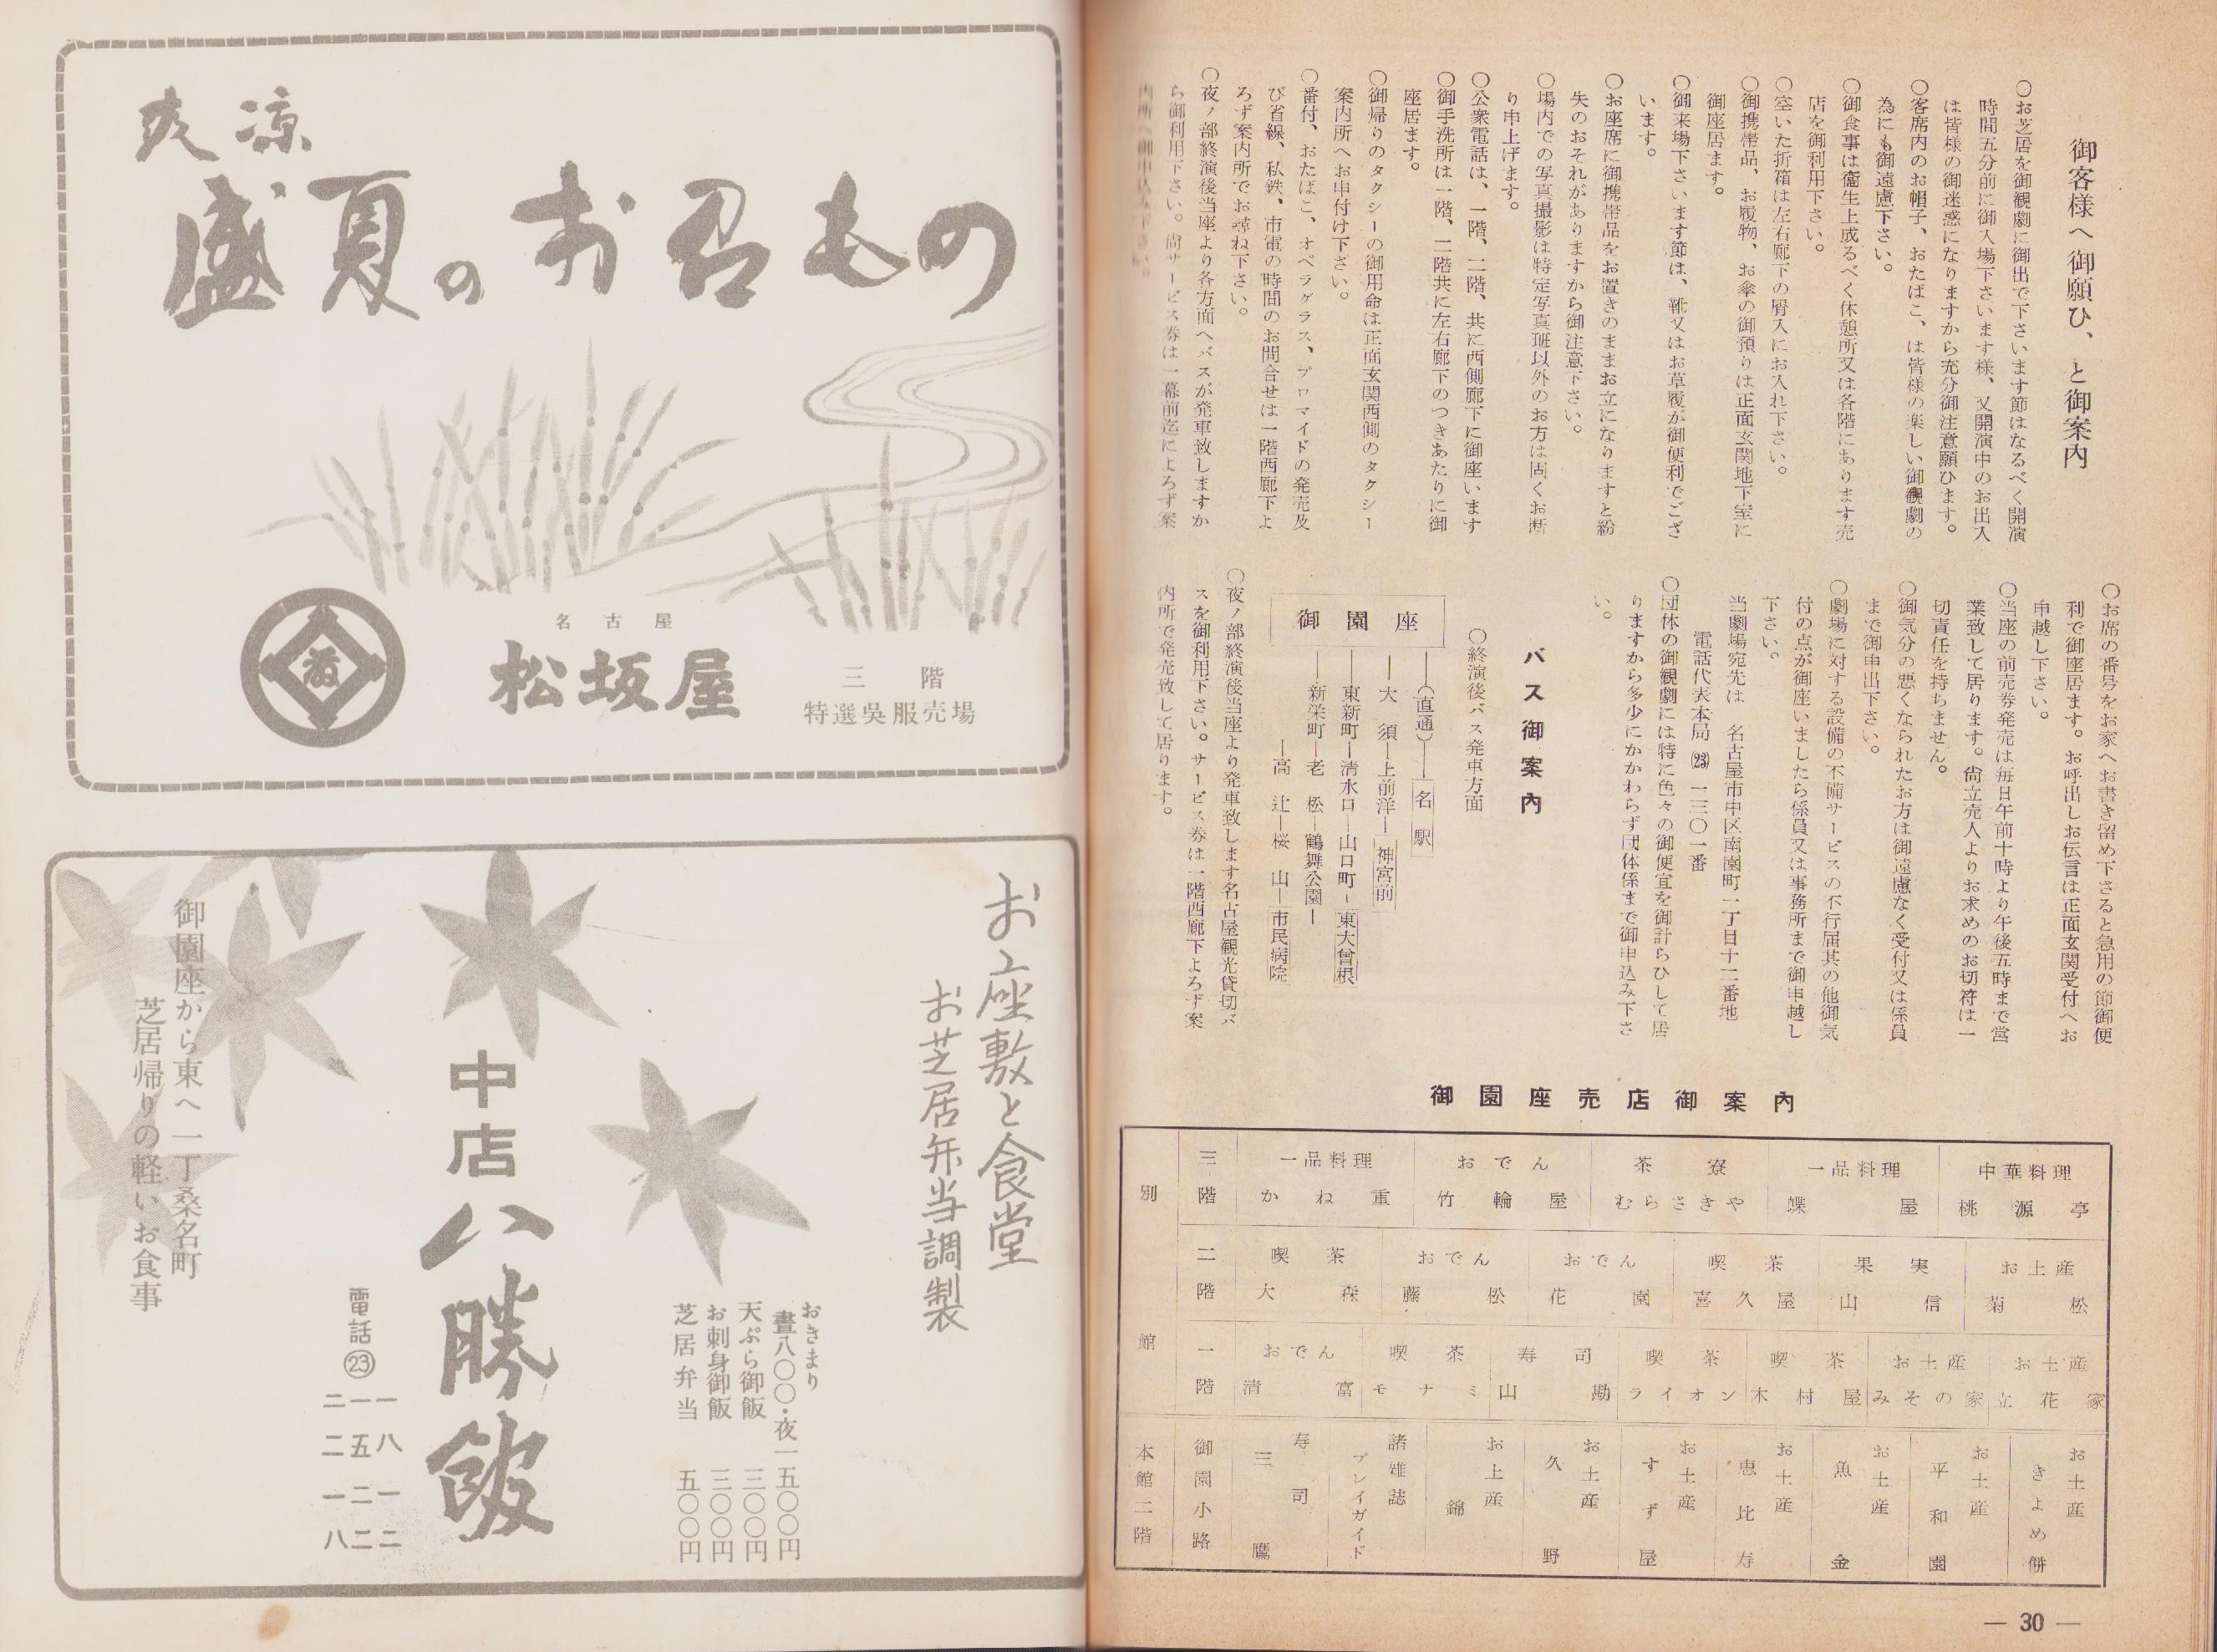 御客様へ御願ひ、と御案内
○お芝居を御観劇に御出で下さいます節はなるべく開演
時間五分前に御入場下さいます様、又開演中のお出入
は皆様の御迷惑になりますから充分御注意願ひます。
○客席内のお帽子、おたばこ、は皆様の楽しい御観劇の
為にも御遠慮下さい。
○御食事は衞生上成るべく休憩所又は各階にあります売
店を御利用下さい。
○空いた折箱は左右廊下の屑入にお入れ下さい。
○御携帯品、お履物、お傘の御預りは正面玄関地下室に
御座居ます。
○御来場下さいます節は、靴又はお草履が御便利でござ
います。
○お座席に御携帯品をお置きのままお立になりますと紛
失のおそれがありますから御注意下さい。
○場内での写真撮影は特定写真班以外のお方は固くお断
り申上げます。
○公衆電話は、一階、二階、共に西側廊下に御座います
○御手洗所は一階、二階共に左右廊下のつきあたりに御
座居ます。
○御帰りのタクシーの御用命は正面玄関西側のタクシー
案内所へお申付け下さい。
○番付、おたばこ、オペラグラス、ブロマイドの発売及
び省線、私鉄、市電の時間のお問合せは一階西廊下よ
ろず案内所でお尋ね下さい。
○夜ノ部終演後当座より各方面へバスが発車致しますか
ら御利用下さい。尙サービス券は一幕前迄によろず案
内所へ御申込み下さい。
○お席の番号をお家へお書き留め下さると急用の節御便
利で御座居ます。お呼出しお伝言は正面玄関受付へお
申越し下さい。
○当座の前売券発売は毎日午前十時より午後五時まで営
業致して居ります。尙立売人よりお求めのお切符は一
切責任を持ちません。
○御気分の悪くなられたお方は御遠慮なく受付又は係員
まで御申出下さい。
○劇場に対する設備の不備サービスの不行届其の他御気
付の点が御座いましたら係員又は事務所まで御申越し
下さい。
当劇場宛先は 名古屋市中区南園町一丁目十二番地
電話代表本局㉓一三〇一番
○団体の御観劇には特に色々の御便宜を御計らひして居
りますから多少にかかわらず団体係まで御申込み下さ
い。
バス御案内
○終演後バス発車方面
御園座
―(直通)―名駅
―大須―上前津―神宮前
―東新町―清水口―山口町―東大曽根
―新栄町―老松―鶴舞公園―
―高辻―桜山―市民病院
○夜ノ部終演後当座より発車致します名古屋観光貸切バ
スを御利用下さい。サービス券は一階西廊下よろず案
内所で発売致して居ります。
御園座売店御案内
別館
三階
一品料理 かね重
おでん 竹輪屋
茶寮 むらさきや
一品料理 蝶屋
中華料理 桃源亭
二階
喫茶 大森
おでん 藤松
おでん 花園
喫茶 喜久屋
果実 山信
お土産 菊松
一階
おでん 清富
喫茶 モナミ
寿司 山勘
喫茶 ライオン
喫茶 木村屋
お土産 みその家
お土産 立花家
本館二階
御園小路
寿司 三鷹
諸雑誌 プレイガイド
お土産 錦
お土産 久野
お土産 すず屋
お土産 恵比寿
お土産 魚金
お土産 平和園
お土産 きよめ餅
― 30 ―
爽凉
盛夏のお召もの
名古屋
松坂屋
三階
特選呉服売場
お座敷と食堂
お芝居弁当調製
おきまり
晝八〇〇・夜一五〇〇円
天ぷら御飯 三〇〇円
お刺身御飯 三〇〇円
芝居弁当 五〇〇円
中店八勝館
電話㉓
一八一二
一五二二
二二一八
御園座から東へ一丁桑名町
芝居帰りの軽いお食事